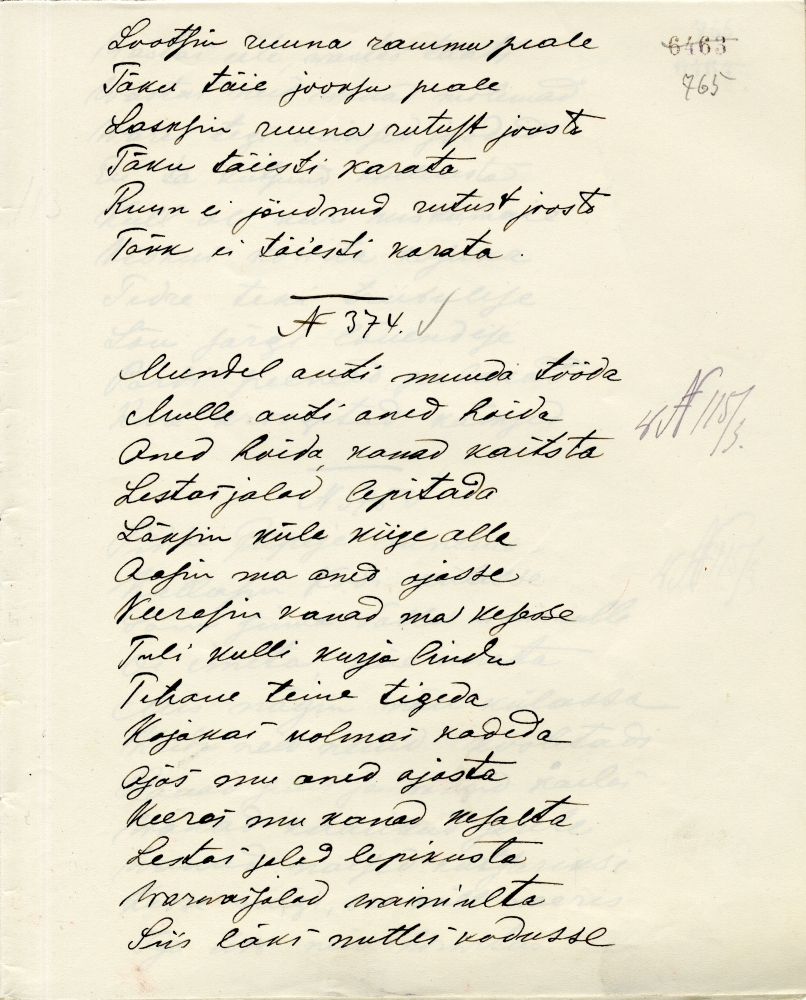 Lootsin ruuna rammu peale
6463
Täku täie jooksu peale
765
Lasksin ruuna rutust joosta
Täku täiesti karata
Ruun ei jõudnud rutust joosta
Täkk ei täiesti karata.
№ 374. ✓
Muudel anti muuda tööda
Mulle anti aned hoida
№ 115/3.
Aned hoida, kanad kaitsta
Lestasjalad lepitada
Läksin küla kiige alla
Aasin ma aned ojasse
Keerasin kanad ma kesasse
Tuli kulli kurja lindu
Tihane teine tigeda
Kajakas kolmas kadeda
Ajas mu aned ojasta
Keeras mu kanad kesalta
Lestas jalad lepikusta
Warwasjalad wainiulta
Siis läksi nuttes kodusse